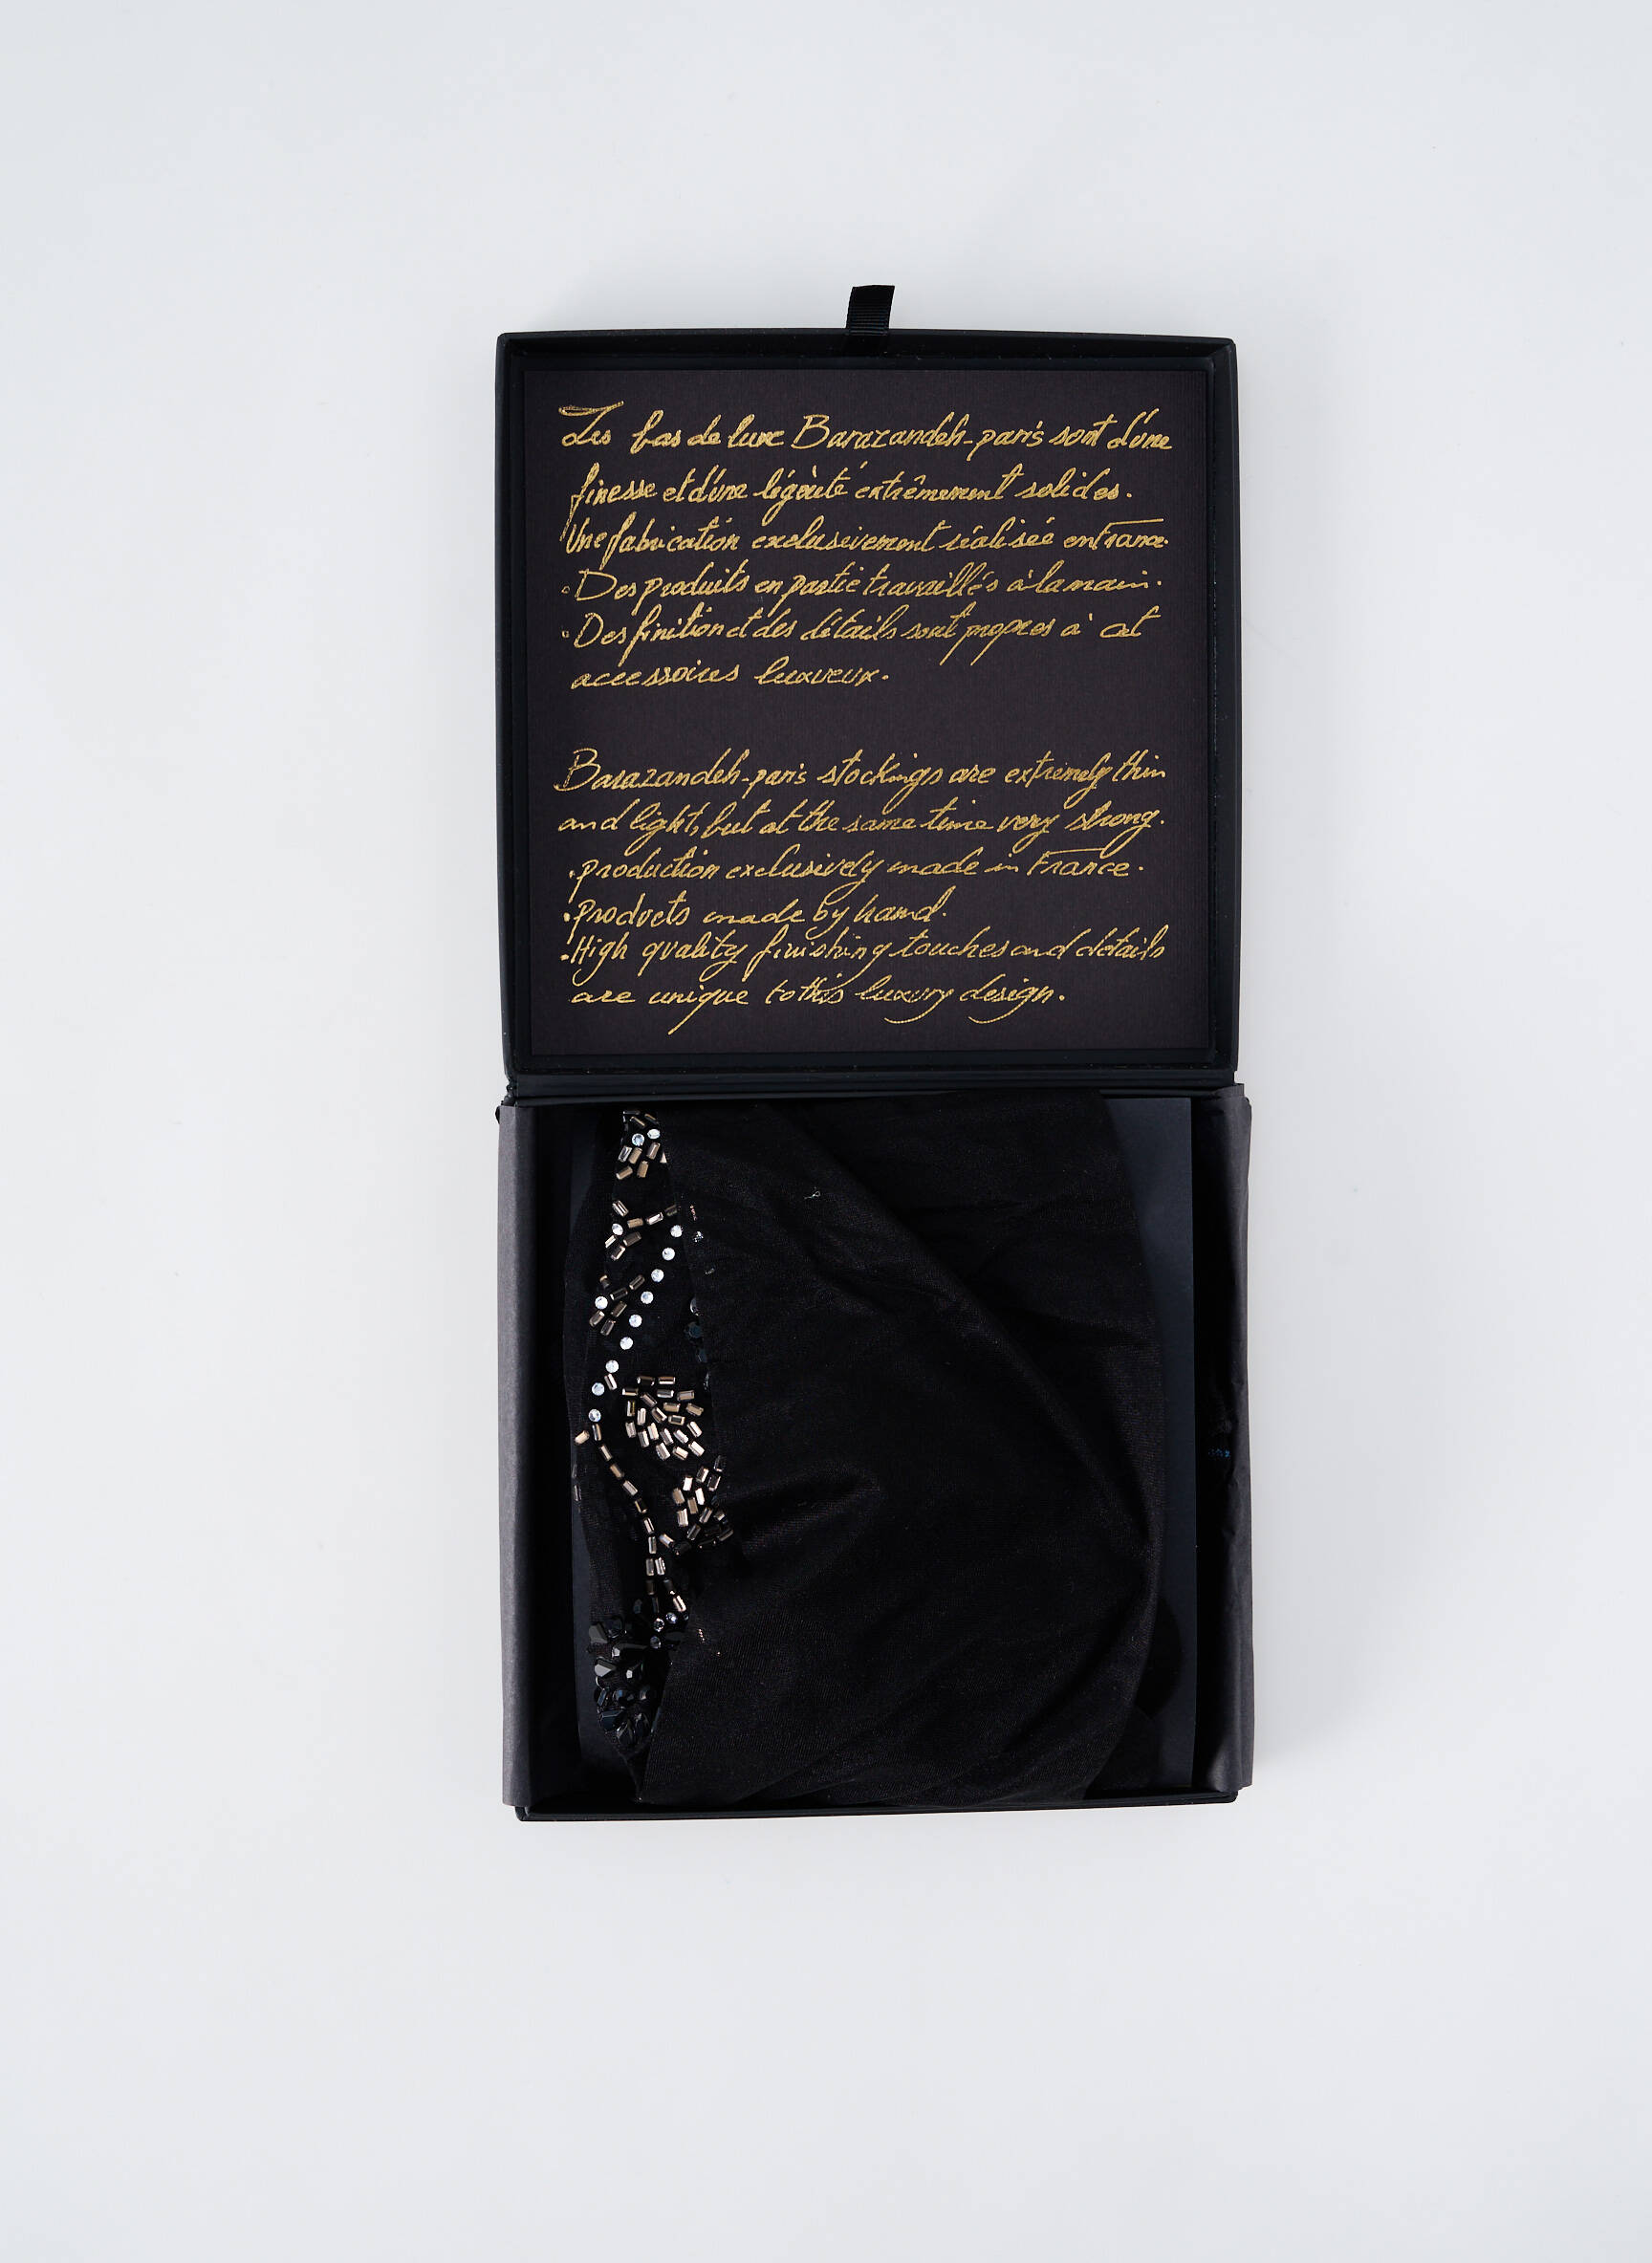 Les bas de luxe Barazandeh-paris sont d'une
finesse et d'une légèreté extrêmement solides.
Une fabrication exclusivement réalisée en France.
• Des produits en partie travaillés à la main.
• Des finition et des détails sont propres à cet
accessoires luxueux.
Barazandeh-paris stockings are extremely thin
and light, but at the same time very strong.
• production exclusively made in France.
• Products made by hand.
• High quality finishing touches and details
are unique to this luxury design.